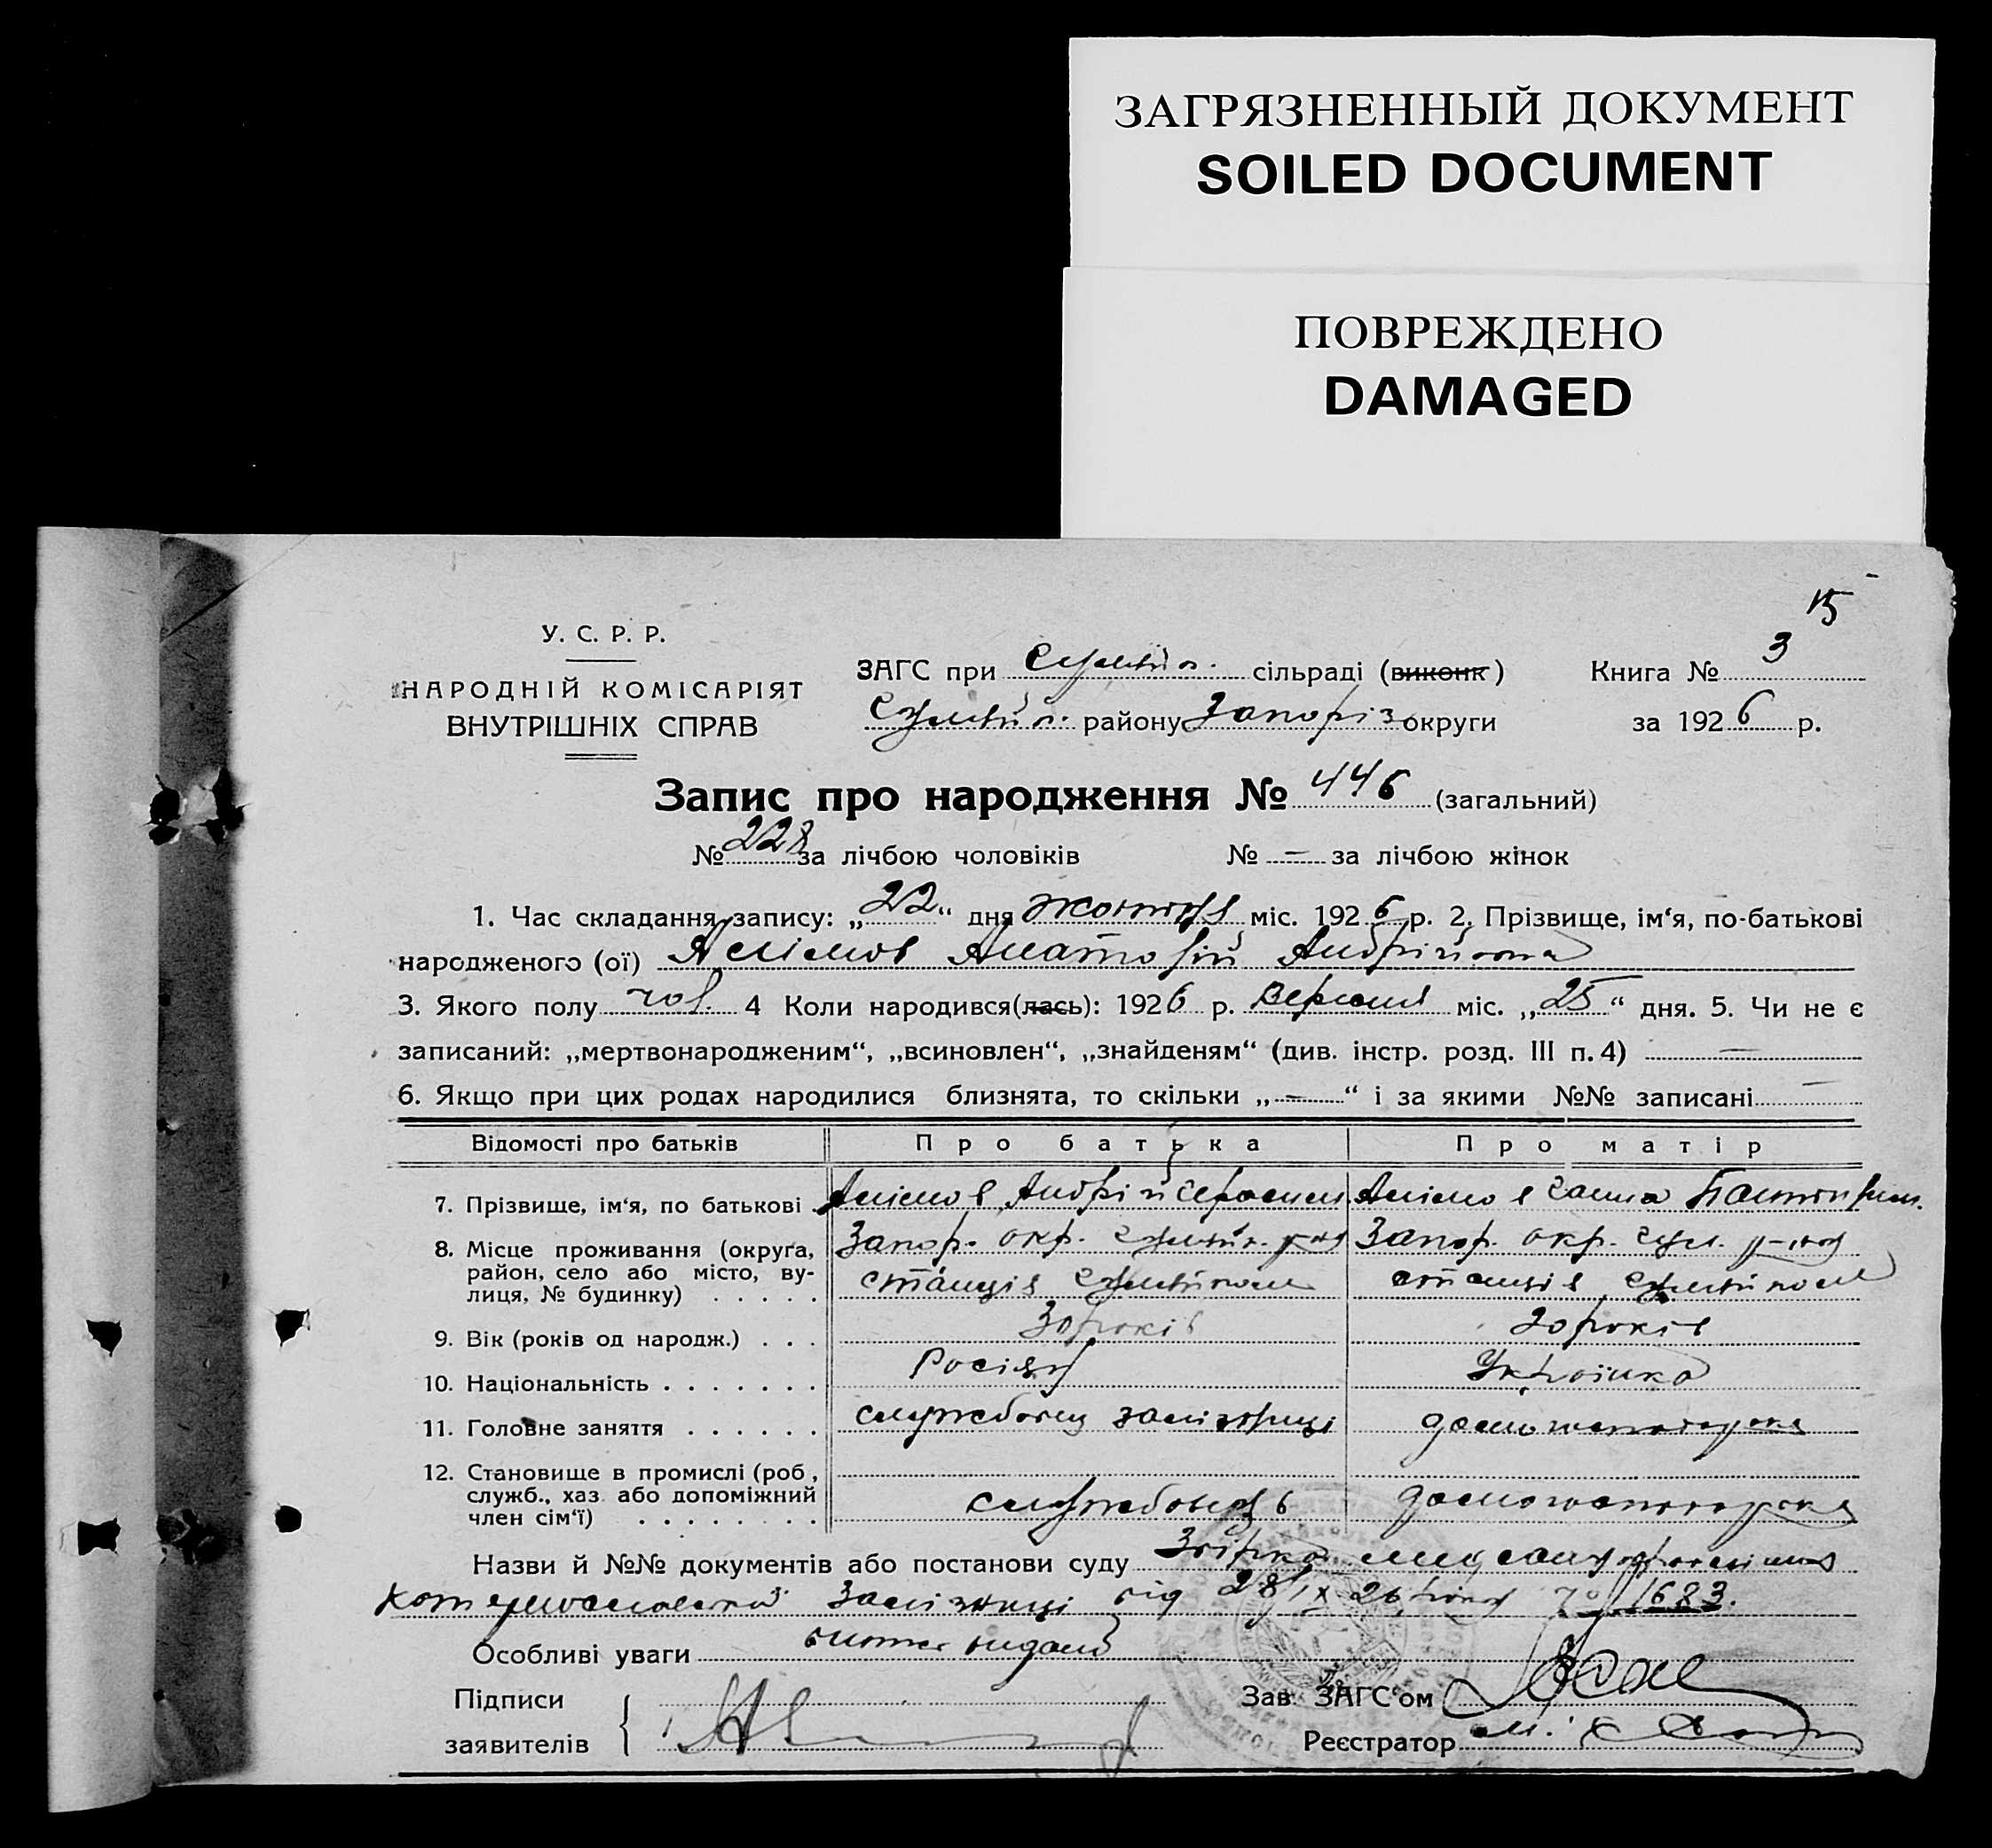 ЗАГРЯЗНЕННЫЙ ДОКУМЕНТ
SOILED DOCUMENT
ПОВРЕЖДЕНО
DAMAGED
15
У. С. Р. Р.
НАРОДНІЙ КОМІСАРІЯТ
ВНУТРІШНІХ СПРАВ
ЗАГС при сільраді (виконк)
Книга № 3
району Запоріз округи
за 1926 р.
Запис про народження № 446 (загальний)
№ 228 за лічбою чоловіків № — за лічбою жінок
1. Час складання запису: „22“ дня жовтня міс. 1926 р. 2. Прізвище, ім‘я, по-батькові
народженого (ої) Анатолій Андрійович
3. Якого полу чол. 4 Коли народився(лась): 1926 р. Вересня міс. „25“ дня. 5. Чи не є
записаний: „мертвонародженим“, „всиновлен“, „знайденям“ (див. інстр. розд. III п. 4) —
6. Якщо при цих родах народилися близнята, то скільки „—“ і за якими №№ записані —
Відомості про батьків Про батька Про матір
7. Прізвище, ім‘я, по батькові . Андрій
8. Місце проживання (округа, Запор. окр. Запор. окр.
район, село або місто, ву- станція станція
лиця, № будинку) . . . . .
9. Вік (років од народж.) . . . 30 років 20 років
10. Національність . . . . . . . Росіян Українка
11. Головне заняття . . . . . . службовец залізниці домогосподарка
12. Становище в промислі (роб., службовець домогосподарка
служб., хаз. або допоміжний
член сім‘ї) . . . . . . . .
Назви й №№ документів або постанови суду
залізниці від 28/IX 26 року № 1683.
Особливі уваги видано
Підписи
заявителів
Зав. ЗАГС‘ом
Реєстратор